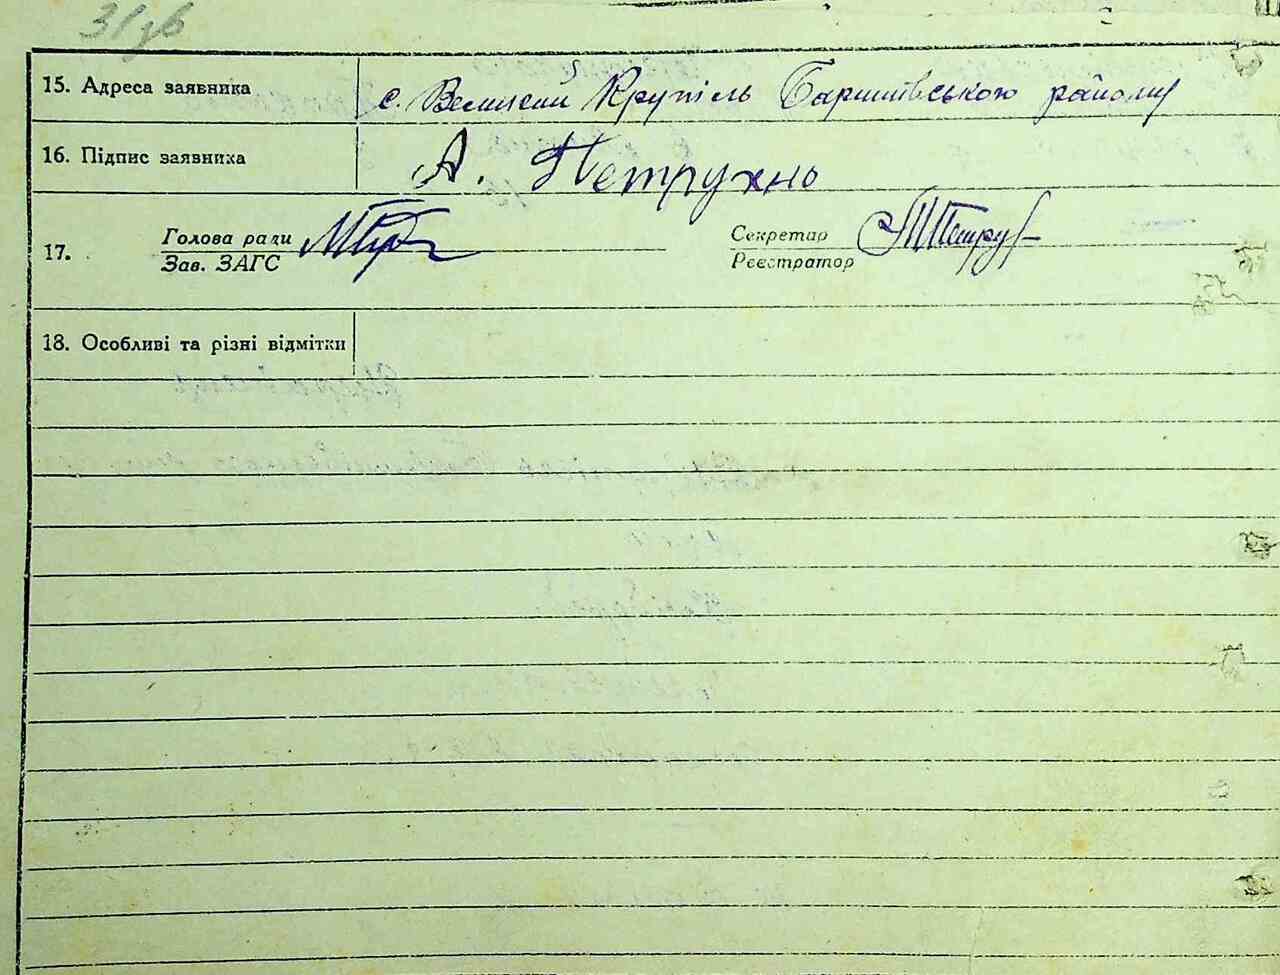 31 зв
15. Адреса заявника с. Великий Крупіль Баришівського району
16. Підпис заявника А. Петрухно
17. Голова ради Секретар
Зав. ЗАГС Реєстратор
18. Особливі та різні відмітки